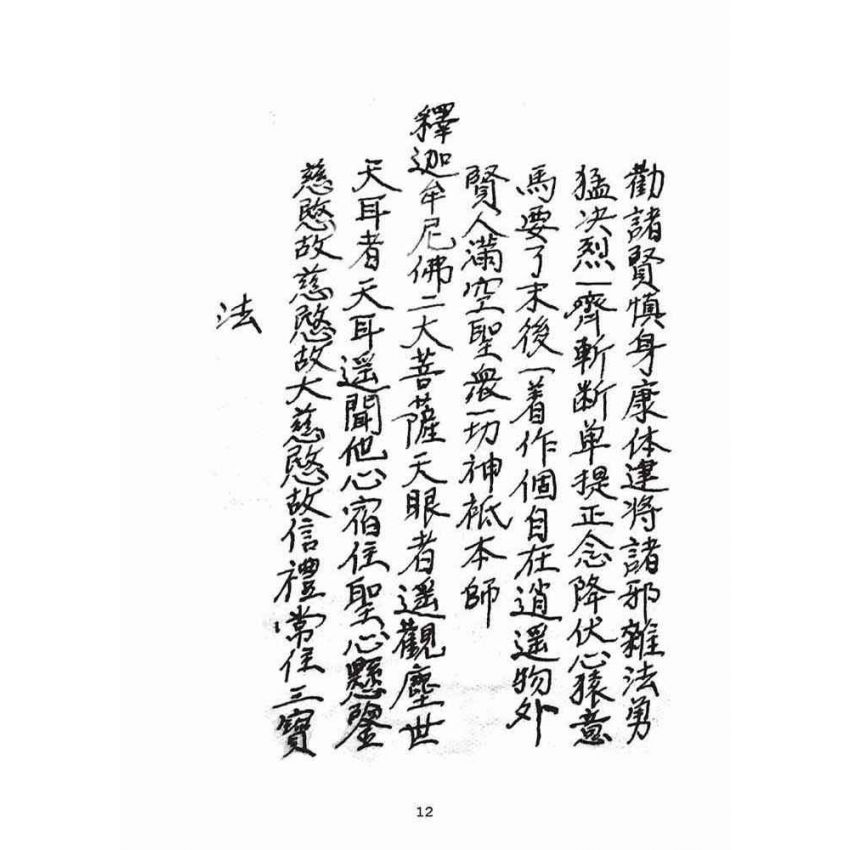 勸諸賢慎身康体建將諸邪雜法勇
猛决烈一齊斬断单提正念降伏心猿意
馬要了末後一着作個自在逍遥物外
賢人滿空聖眾一切神祗本師
釋迦牟尼佛二大菩薩天眼者遥觀塵世
天耳者天耳遥聞他心宿住聖心懸鑒
慈愍故慈愍故大慈愍故信禮常住三寶
法
12